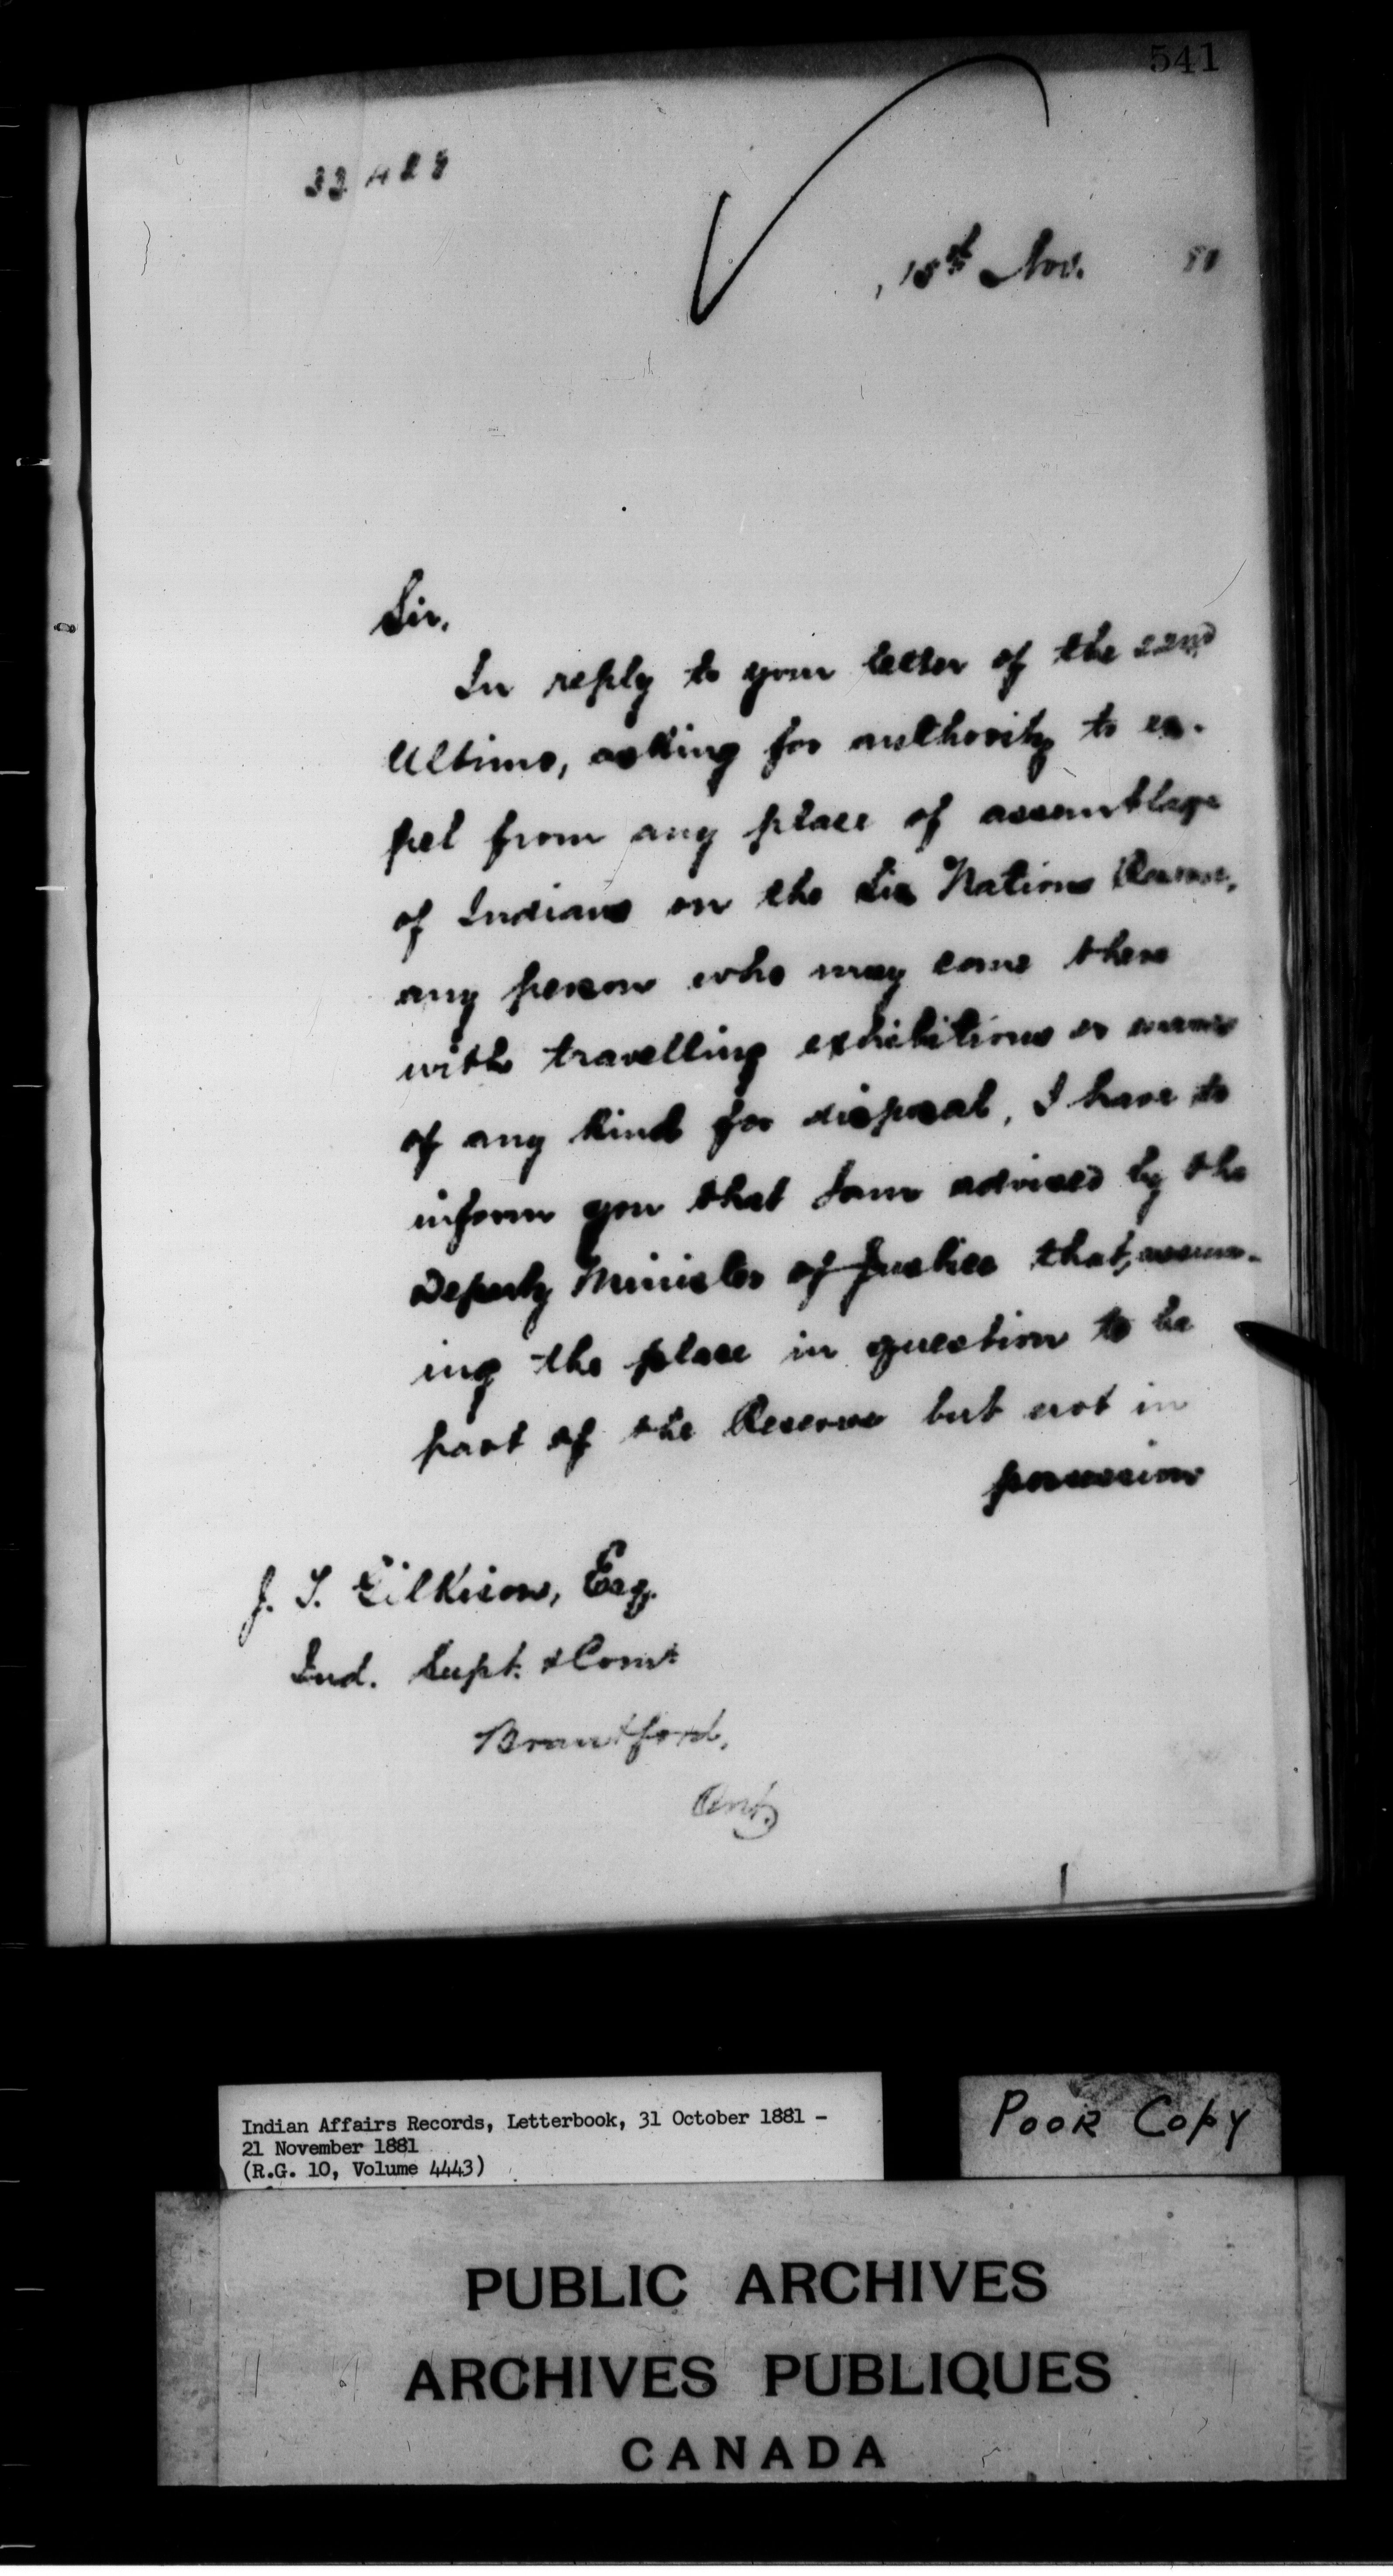 541
15th Nov. 81
Sir,
In reply to your letter of the 22nd
Ultimo, asking for authority to ex-
pel from any place of assemblage
of Indians on the Six Nations Reserve,
any person who may come there
with travelling exhibitions or wares
of any kind for disposal, I have to
inform you that I am advised by the
Deputy Minister of Justice that, assum-
ing the place in question to be
part of the Reserve but not in
possession
J. T. Gilkison, Esq.
Ind. Supt. & Comr.
Brantford,
Ont.
Indian Affairs Records, Letterbook, 31 October 1881 -
21 November 1881
(R.G. 10, Volume 4443)
POOR COPY
PUBLIC ARCHIVES
ARCHIVES PUBLIQUES
CANADA